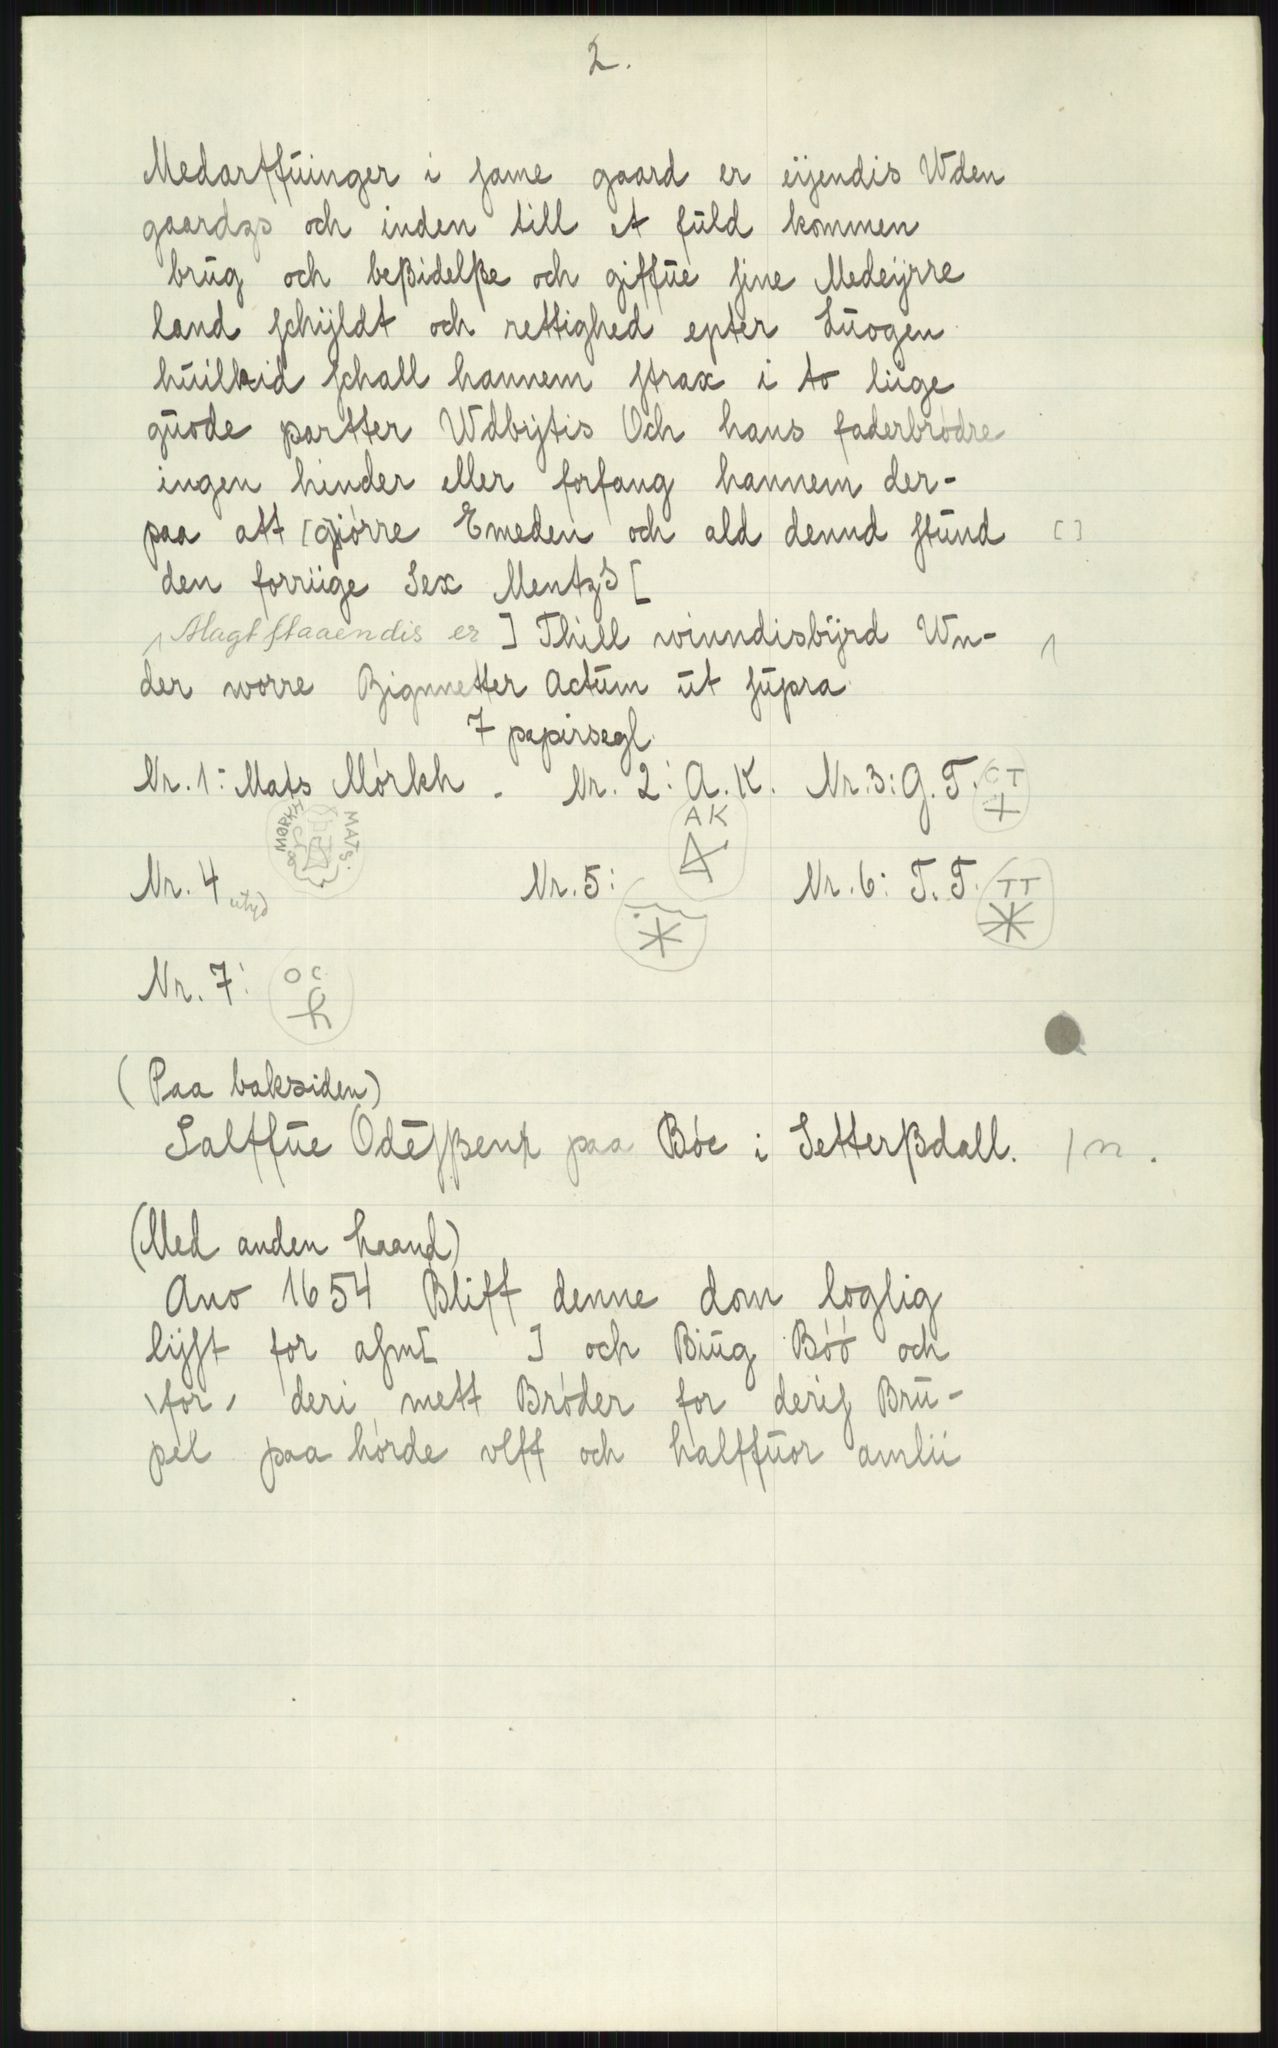 2.
Medarffūinger i same gaard er eijendis Wden
gaardzs och inden till et fūld kommen
brūg och beßidelße och giffūe sine Medeijrre
land schijldt och rettighed epter Lūogen
hūilkid schall hannem strax i to liige
gūode partter Wdbijtis Och hans faderbródre
ingen hinder eller forfang hannem der-
paa att [gjiórre Emeden och ald dennd stūnd []
den forriige Sex Mentzs [
Magt staaendis er ] Thill winndisbijrd Wn-
der worre Zignnetter Actūm ūt sūpra
7 papirsegl
Nr. 1: Mats Mórkh. Nr. 2: A. K. Nr. 3: G. T. CT
MATS MØRKH
AK
Nr. 4 utyd Nr. 5: Nr. 6: T. T. TT
Nr. 7: OC
(Paa baksiden)
Salffūe Odēsßenn paa Bóe i Setterßdall. / n.
(Med anden haand)
Ano 1654 Bliff denne dom loglig
lijst for asm[ ] och Biūg Bóó och
for deri mett Bróder for deris Brū-
pel paa hórde vlff och halffūor amlii